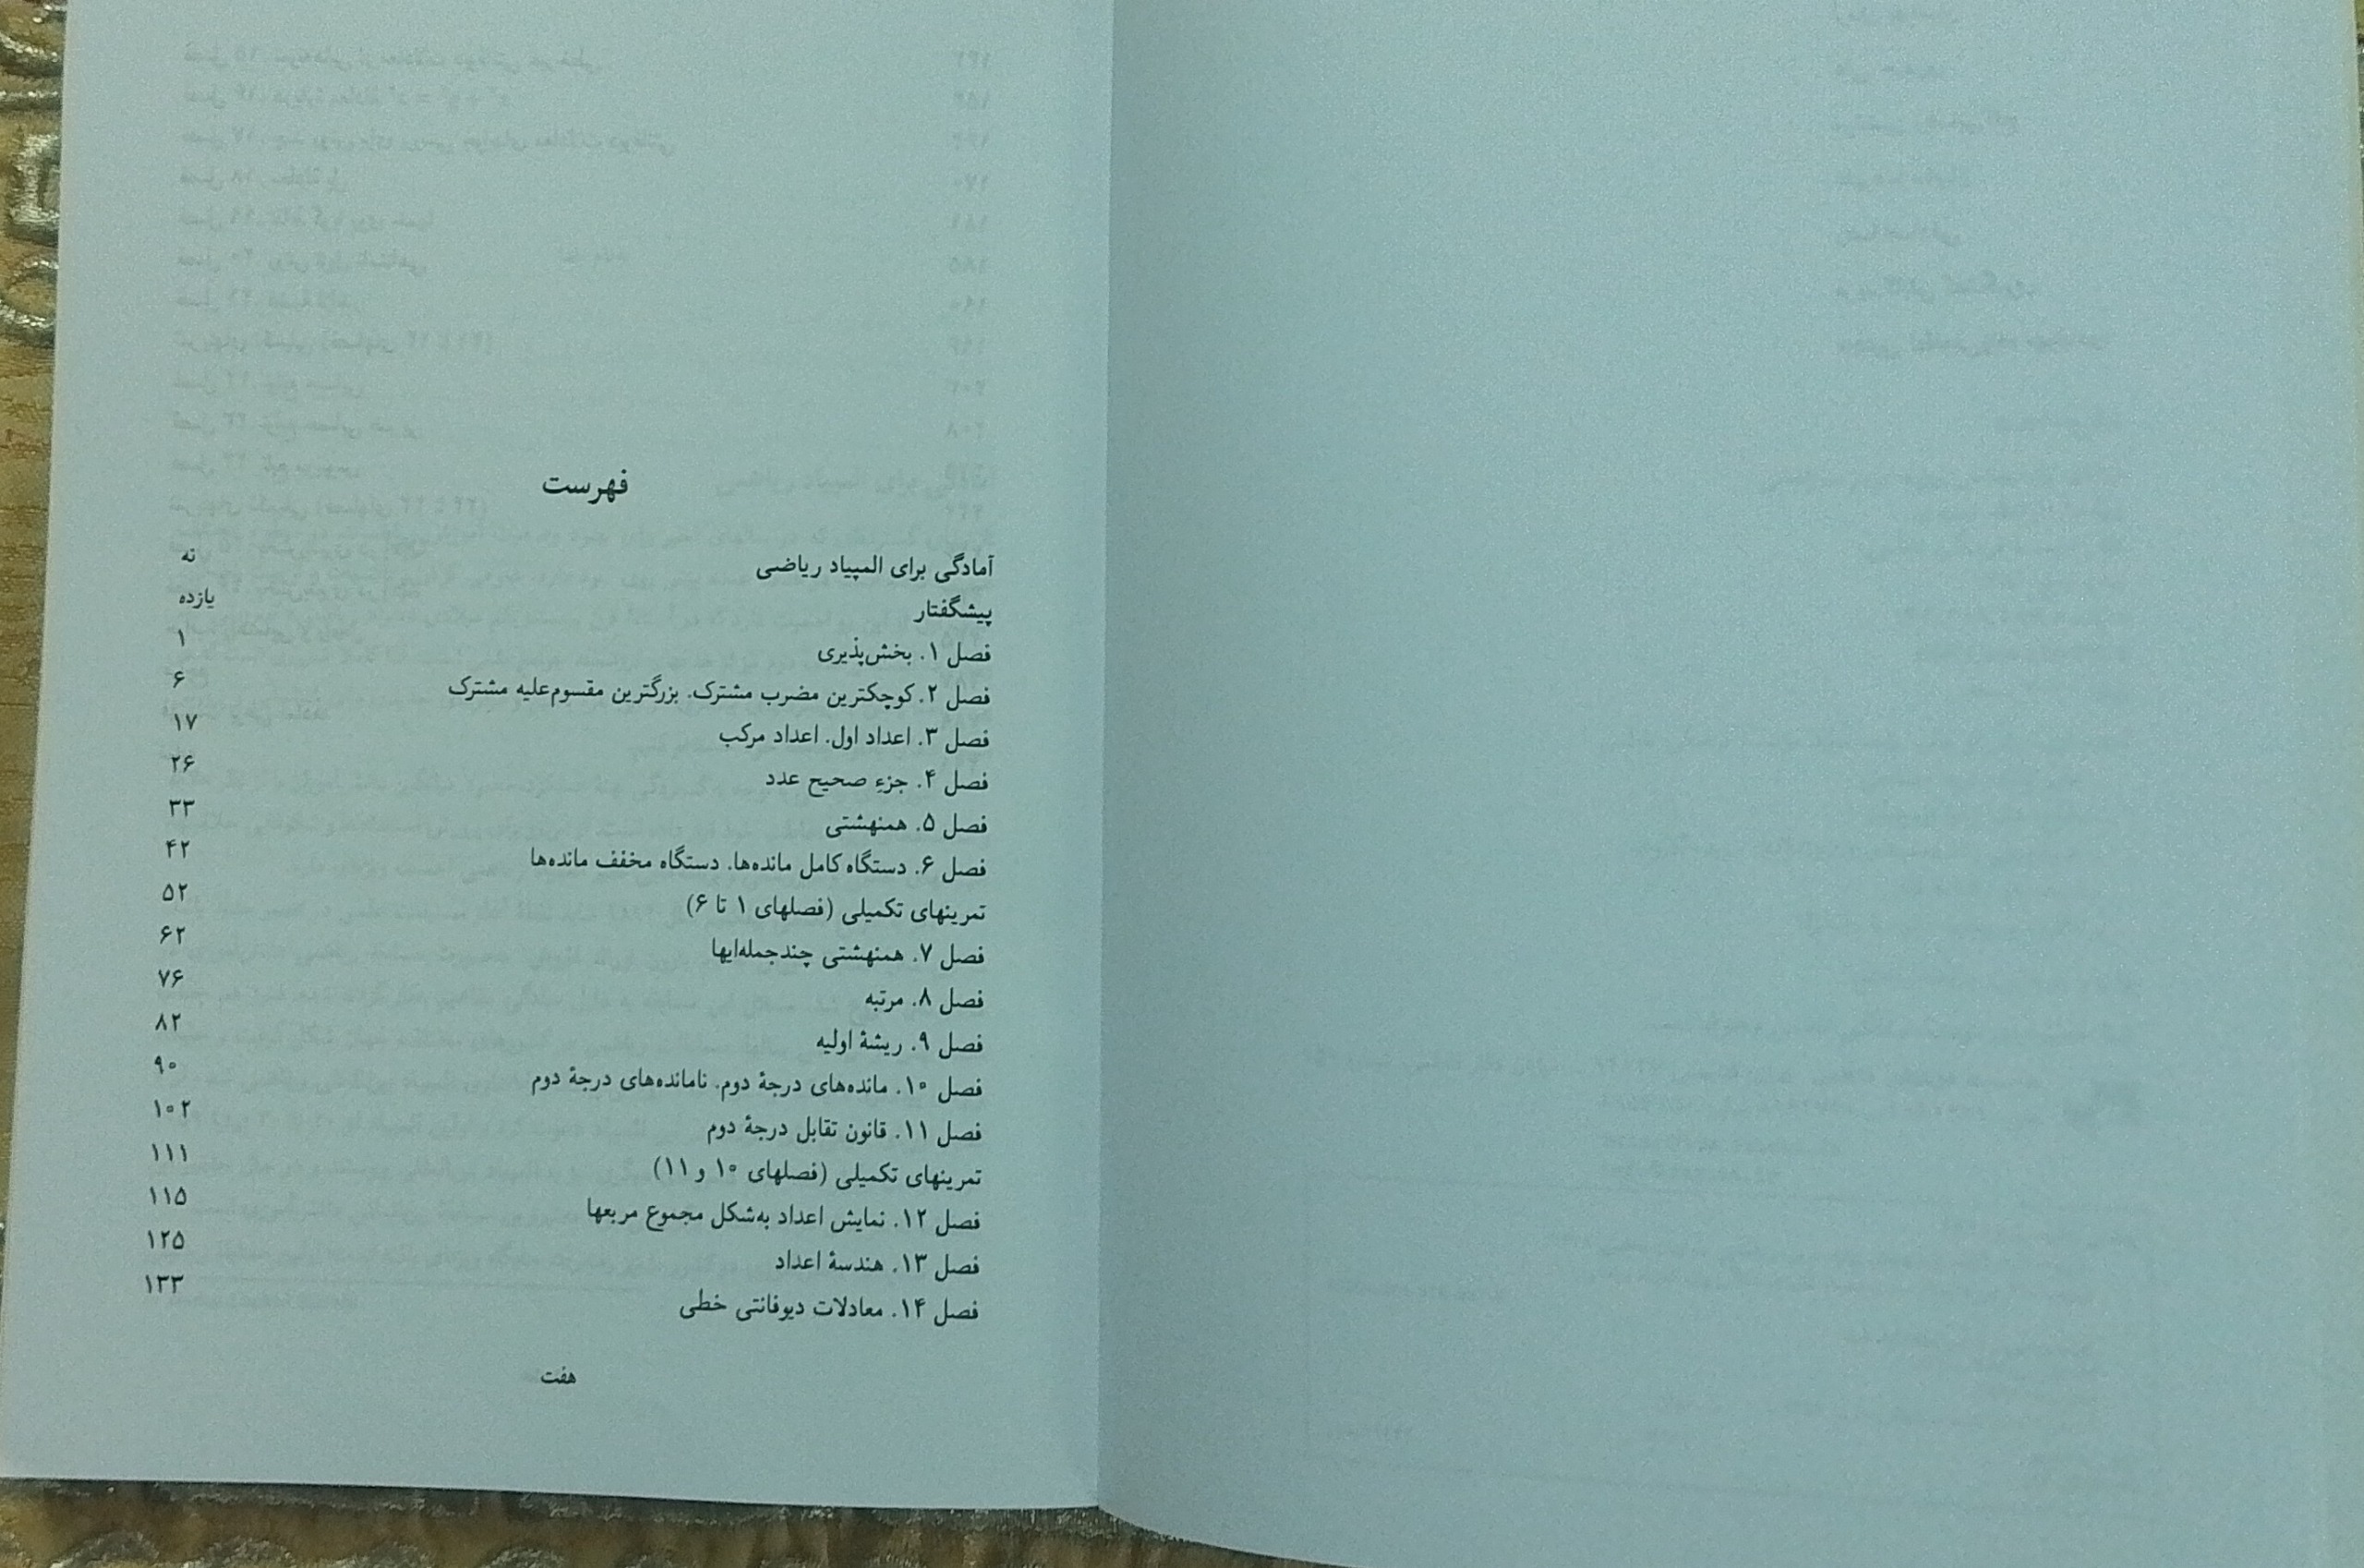 فهرست
آمادگی برای المپیاد ریاضی نه
پیشگفتار یازده
فصل ۱. بخش‌پذیری ۱
فصل ۲. کوچکترین مضرب مشترک. بزرگترین مقسوم‌علیه مشترک ۶
فصل ۳. اعداد اول. اعداد مرکب ۱۷
فصل ۴. جزءِ صحیح عدد ۲۶
فصل ۵. همنهشتی ۳۳
فصل ۶. دستگاه کامل مانده‌ها. دستگاه مخفف مانده‌ها ۴۲
تمرینهای تکمیلی (فصلهای ۱ تا ۶) ۵۲
فصل ۷. همنهشتی چندجمله‌ایها ۶۲
فصل ۸. مرتبه ۷۶
فصل ۹. ریشهٔ اولیه ۸۲
فصل ۱۰. مانده‌های درجهٔ دوم. نامانده‌های درجهٔ دوم ۹۰
فصل ۱۱. قانون تقابل درجهٔ دوم ۱۰۲
تمرینهای تکمیلی (فصلهای ۱۰ و ۱۱) ۱۱۱
فصل ۱۲. نمایش اعداد به‌شکل مجموع مربعها ۱۱۵
فصل ۱۳. هندسهٔ اعداد ۱۲۵
فصل ۱۴. معادلات دیوفانتی خطی ۱۳۳
هفت